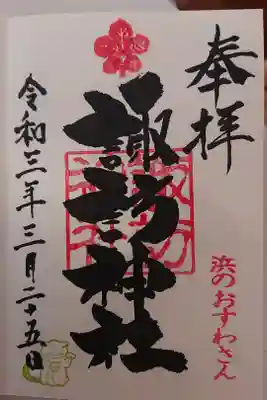 奉拝
浜のおすわさん
諏訪神社
令和三年三月二十五日